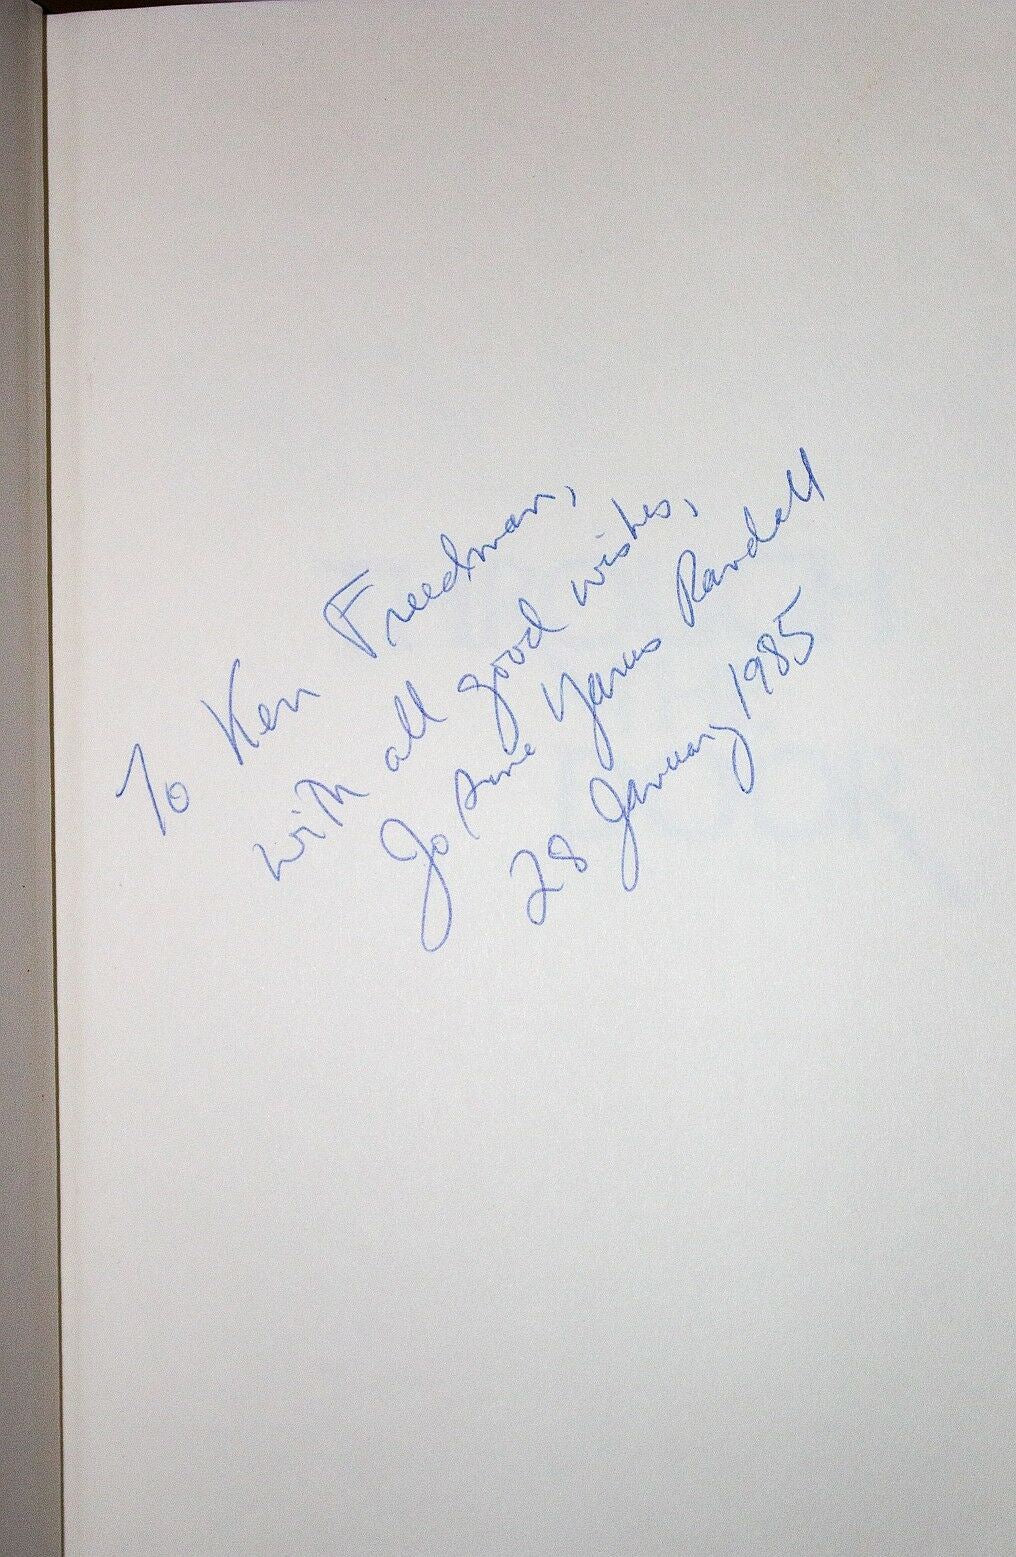 To Ken Freedman,
with all good wishes,
Jo Anne Yarus Randall
28 January 1985